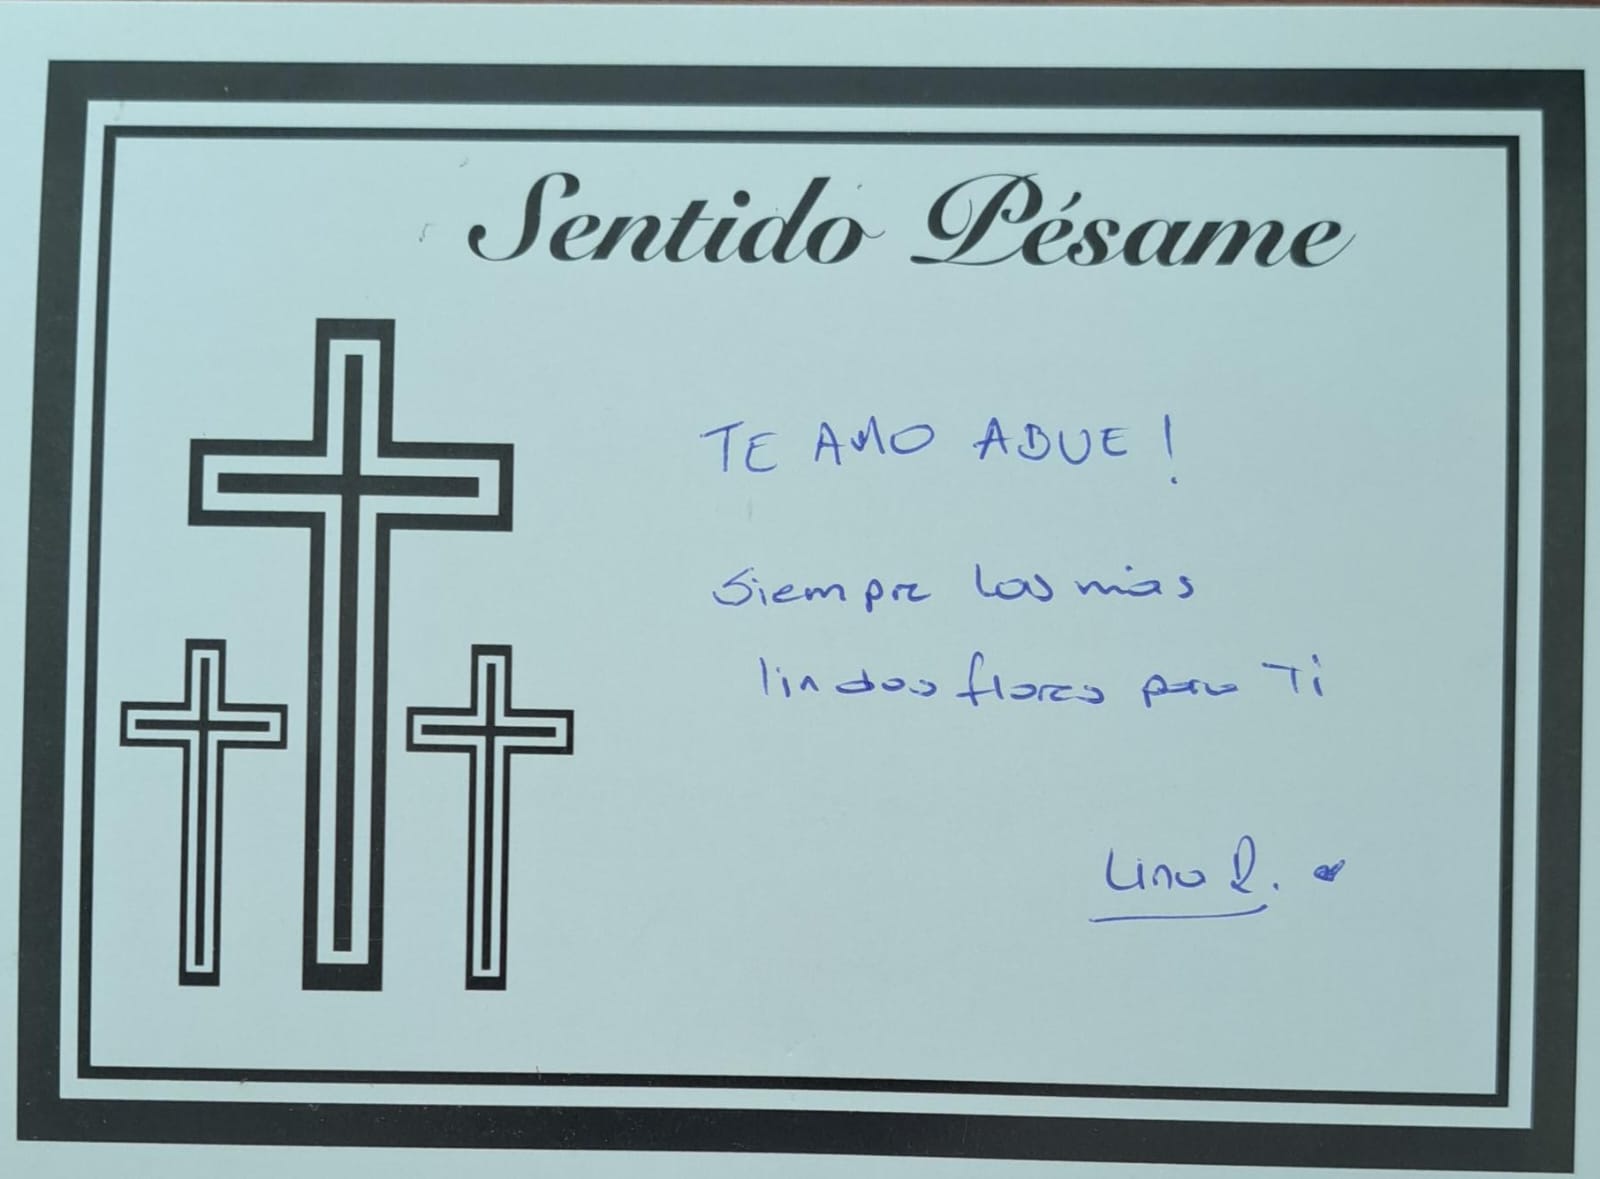 Sentido Pésame
TE AMO ABUE!
Siempre las más
lindas flores para Ti
Lina R.